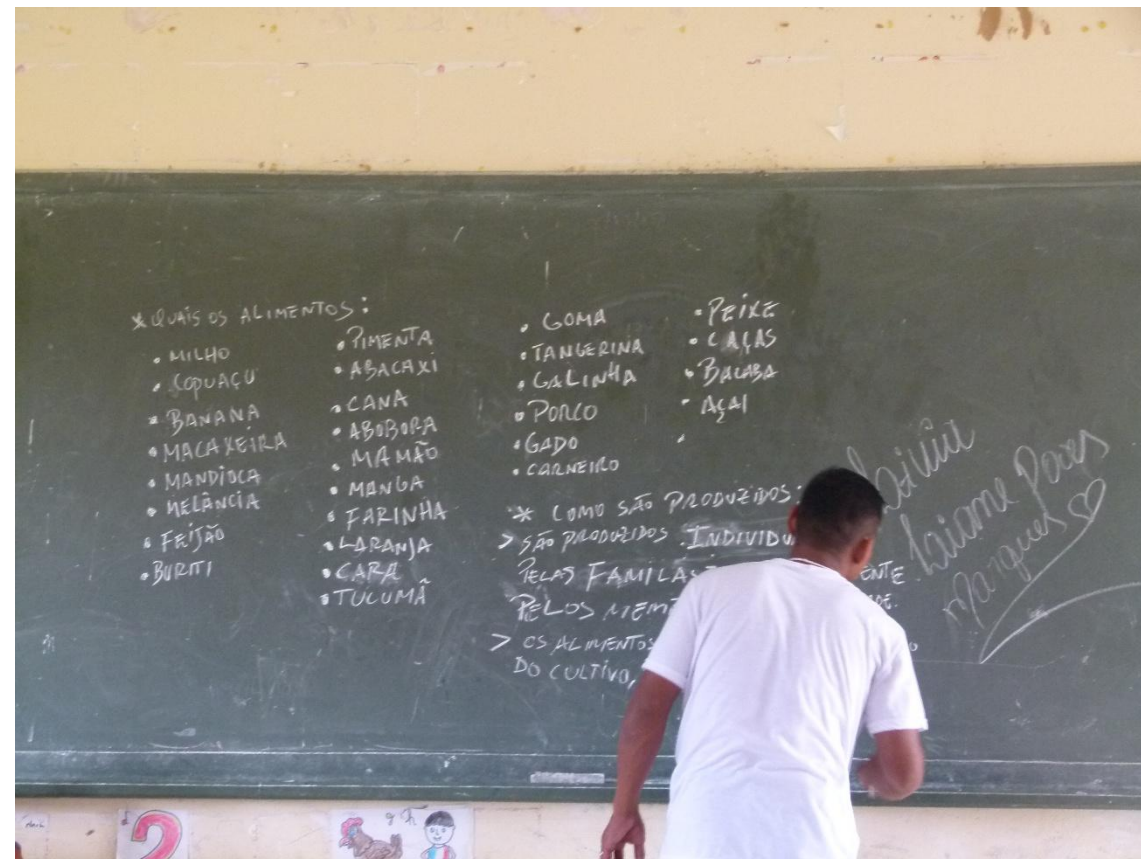 * QUAIS OS ALIMENTOS:
• MILHO
• COPUAÇU
• BANANA
• MACAXEIRA
• MANDIOCA
• MELÂNCIA
• FEIJÃO
• BURITI
• PIMENTA
• ABACAXI
• CANA
• ABOBORA
• MAMÃO
• MANGA
• FARINHA
• LARANJA
• CARA
• TUCUMÃ
• GOMA
• TANGERINA
• GALINHA
• PORCO
• GADO
• CARNEIRO
• PEIXE
• CAÇAS
• BACABA
• AÇAI
* COMO SÃO PRODUZIDOS:
> SÃO PRODUZIDOS INDIVIDU
PELAS FAMILAS ENTE
PELOS MEM DE.
> OS ALIMENTOS
DO CULTIVO,
Laiane
Marques
2